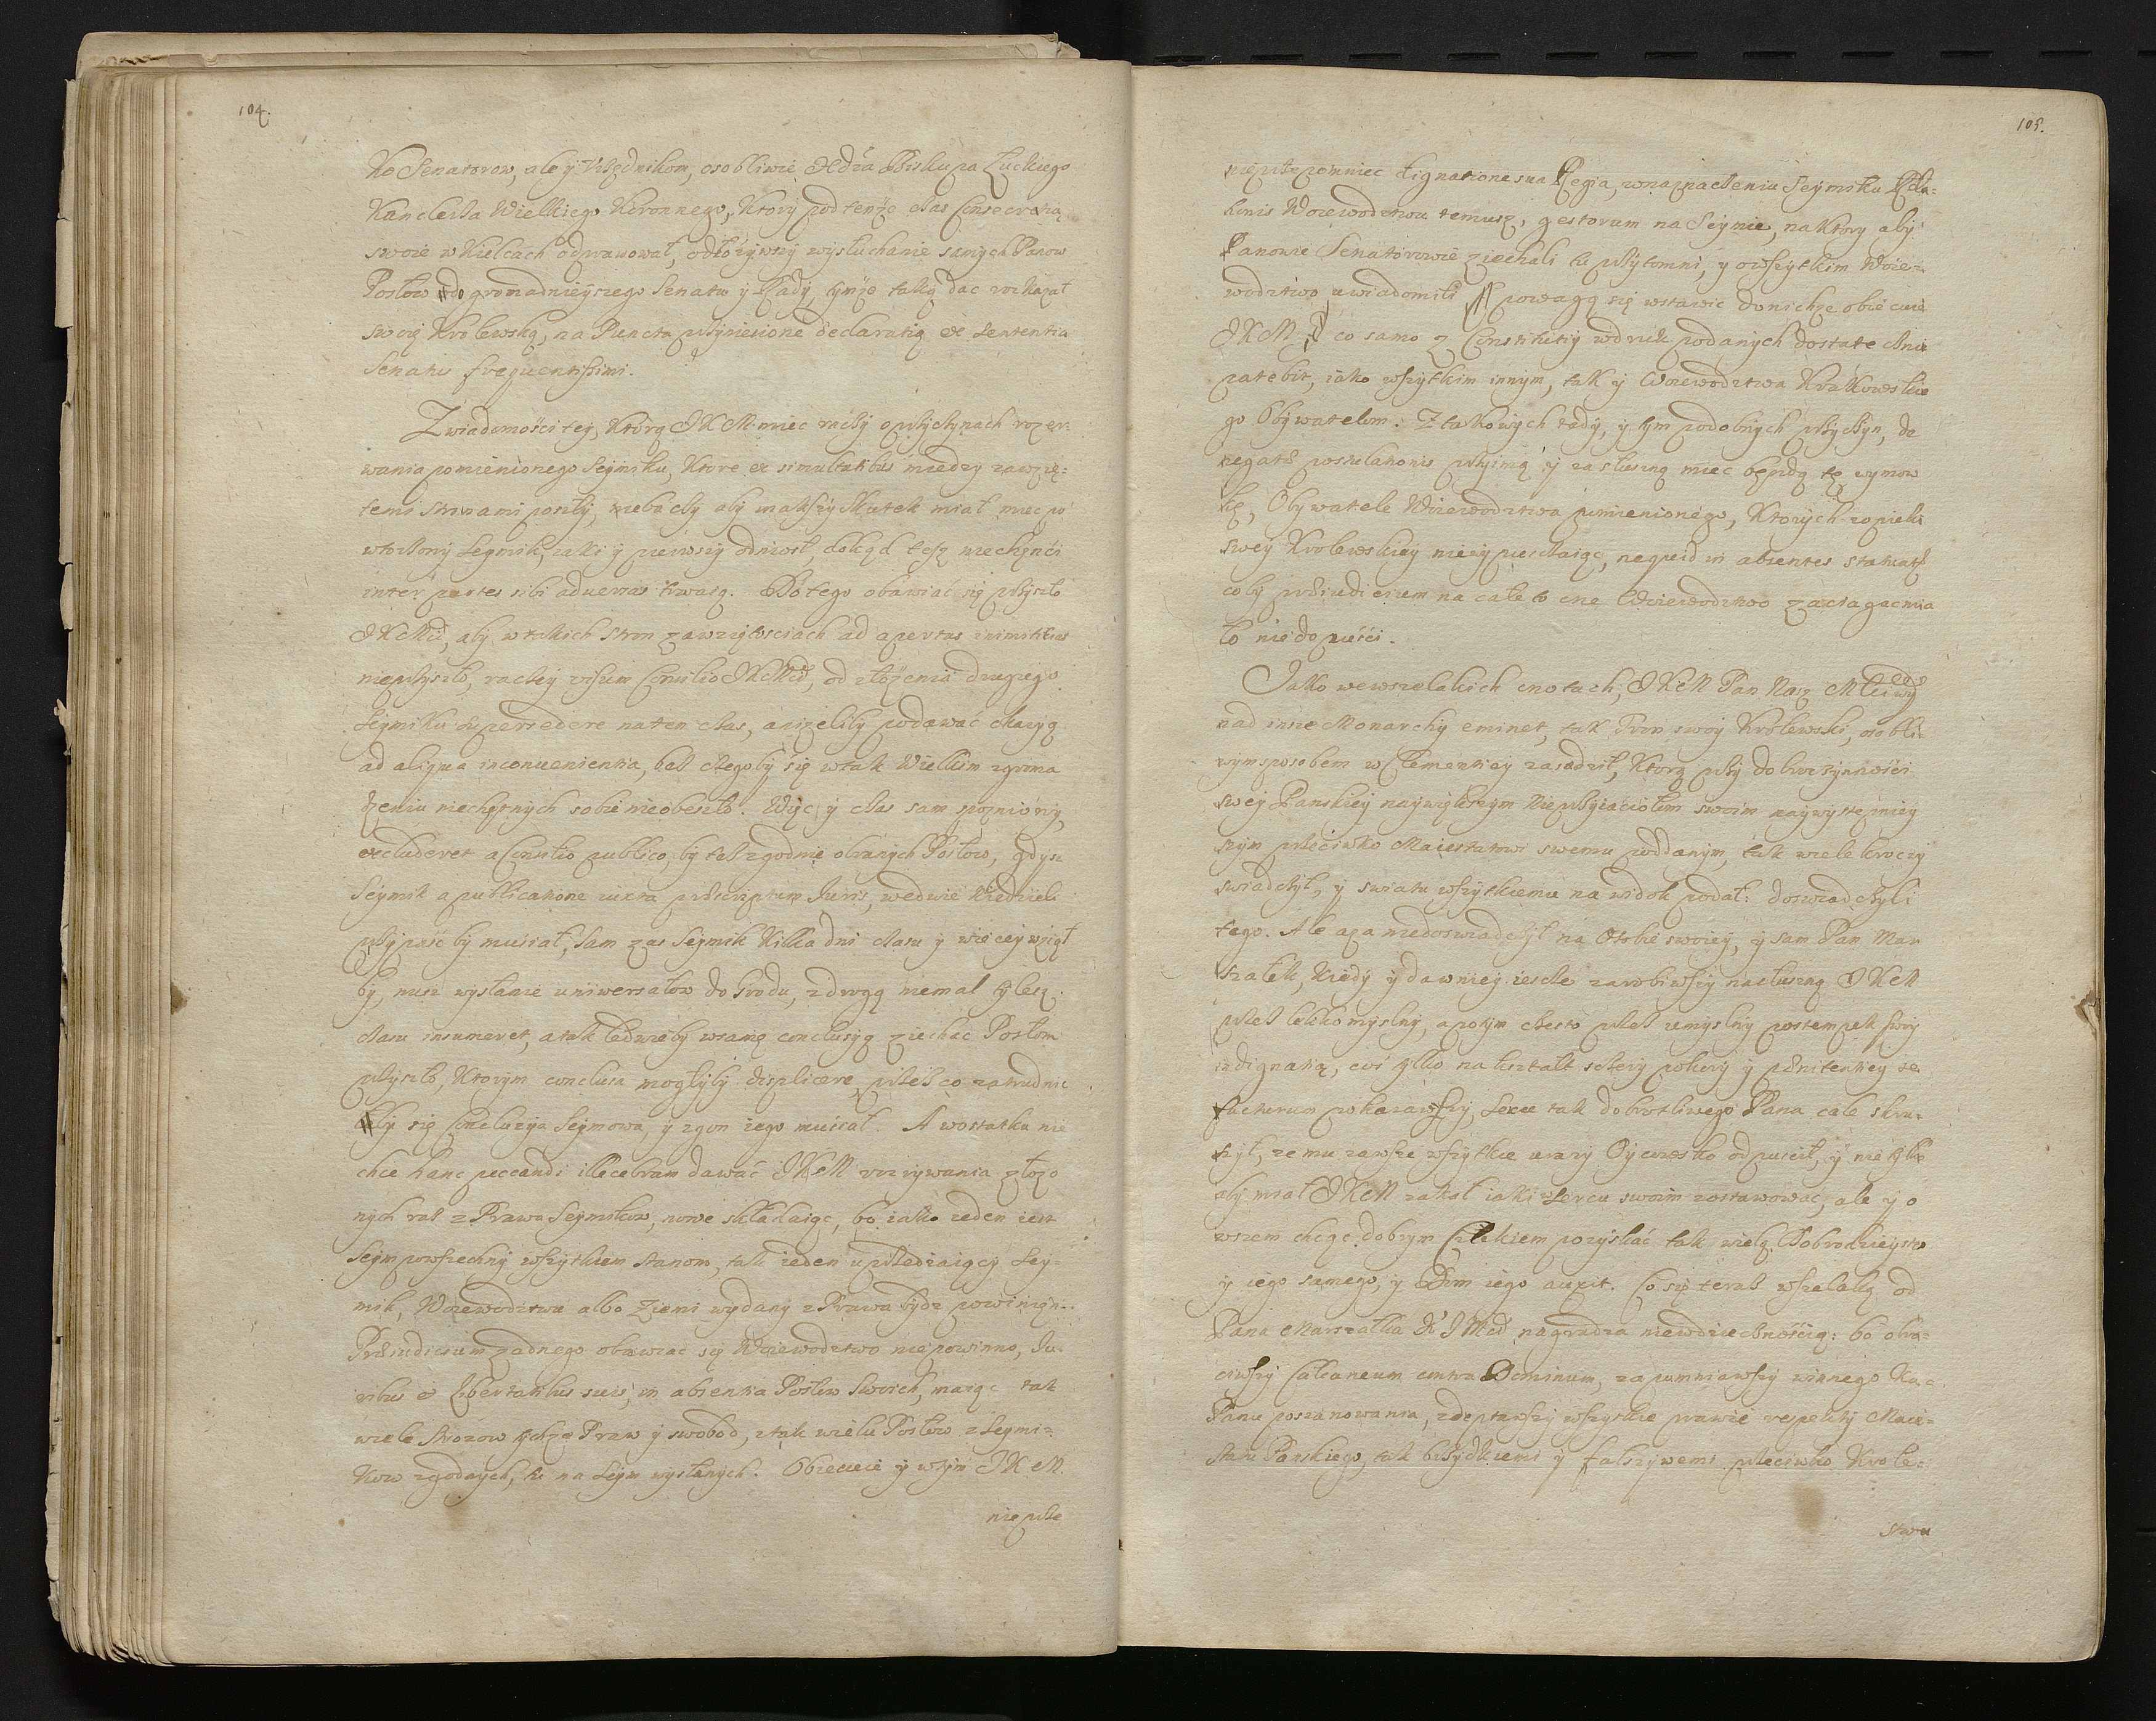 104.
Ko Senatorow, ale y Urzędnikom, osobliwie Xdza Biskupa Łuckiego
Kanclerza Wielkiego Koronnego, Ktory pod tenże czas Consecratią
swoię w Kielcach odprawował, odłożywszy wysłuchanie samych Panow
Posłow do gromadnieyszego Senatu y Rady, tymże taką dac rozkazał
swoię Krolewską, na Puncta przyniesione declaratią ex sententia
Senatus frequentissimi.
Z wiadomości tey, Ktorą IKM miec raczy o przyczynach rozer-
wania pomienionego Seymiku, Ktore ex simultatibus miedzy zawzię-
temi stronami poszły, nie baczy aby inakszy skutek miał miec po
wtorzony Seymik, iaki y pierwszy odniosł, dokąd też niechęnci
inter partes sibi adversas trwaią. Bo tego obawiać się przyszło
IKMci, aby w takich stron zawziętosciach ad apertas inimicitias
nieprzyszło, raczey visum Consilio IKMci, od złożenia drugiego
Seymiku supersedere na ten czas, aniżeliby podawać okazyą
ad aliqua inconvenientia, bez czegoby się w tak Wielkim zgroma
dzeniu niechętnych sobie nieobeszło. Więc y czas sam spozniony,
excluderet a Consilio publico, by też zgodnie obranych Posłow, gdysz
Seymik a publicatione iuxta praescriptum Iuris, we dwie Niedzieli
przypaść by musiał, Sam zas Seymik Kilka dni czasu y wiecey wziął
by, nusz wysłanie uniwersałow do Grodu, z drogą niemal tylesz
czasu insumeret, a tak ledwieby w samą conclusyą ziechac Posłom
przyszło, Ktorym conclusa mogłyby displicere, przez co zatrudnic
by się Concluzya Seymowa, y zgon iego musiał. A w ostatku nie
chce hanc peccandi illecebram dawać IKM rozrywania złożo
nych raz z Prawa Seymikow, nowe składaiąc, bo iako ieden iest
Seym powszechny wszytkiem stanom, tak ieden uprzedzaiący Sey-
mik, Woiewodztwu albo Ziemi wydany z Prawa bydz powinien.
Praeiudicium żadnego obawiać się Woiewodztwo nie powinno, Iu-
ribus et libertatibus suis, in absentia Posłow Swoich, maiąc tak
wiele Strożow tychże Praw y swobod, z tak wielu Posłow z Seymi-
kow zgodnych, tu na Seym wysłanych. Obiecuie y w tym IKM
nie prze
105.
nie przepomniec dignatione sua Regia, w naznaczeniu Seymiku Rela-
tionis Woiewodztwu temusz, gestorum na Seymie, na Ktory aby
Panowie Senatorowie ziechali tu przytomni, y o wszytkim Woie-
wodztwo uwiadomili powagą się wstawic do nichże obiecuie
IKM, co samo z Constitutiy w druk podanych dostatecznie
patebit, iako wszytkim innym, tak y Woiewodztwa Krakowskie
go Obywatelom. Z takowych tedy, y tym podobnych przyczyn, de
negatae postulationis przyimą y za słuszną miec będą tę wymow
kę, Obywatele Woiewodztwa pomienionego, Ktorych z opieki
swey Krolewskiey nie wypuszczaiąc, ne quid in absentes statuatur
coby praeiudicium na całe to cne Woiewodztwo zaciagac mia
ło nie dopuści.
Jako we wszelakich cnotach, IKM Pan Nasz Mciwy
nad insze Monarchy eminet, tak Tron swoy Krolewski, osobli-
wym sposobem w Clementiey zasadził, Ktorą przy dobroczynności
swey Panskiey naywiększym Nieprzyiaciołom swoim naywystępniey
szym przeciwko Maiestatowi swemu poddanym, tak wielekroczy
swiadczył, y swiatu wszytkiemu na widok podał: doswiadczyli
tego. Ale aza niedoswiadczył na Osobie swoiey, y sam Pan Mar
szałek, Kiedy y dawniey iescze zarobiwszy na słuszną IKM
przez lekkomyslny, a potym często przez umyslny postempek swoy
indignatią, cos tylko na kształt sczery pokory y paenitentiey se
facturum pokazawszy, serce tak dobrotliwego Pana cale skru-
szył, ze mu zawsze wszytkie urazy Oycowsko odpuscił, y nie tylko
aby miał IKM zakał iaki w sercu swoim zostawować, ale y o
wszem chcąc dobrym człekiem pozyskać tak wielą Dobrodzieystw
y iego samego, y Dom iego auxit. Co się teraz wszelaką od
Pana Marszałka K IMci nagradza niewdzięcznością: bo obro-
ciwszy Calcaneum contra Dominum, zapomniawszy winnego Ku
Panu poszanowania, zdeptawszy wszytkie prawie respekty Maie-
statu Panskiego, tak brzydkiemi y fałszywemi przeciwko Krole-
stwu